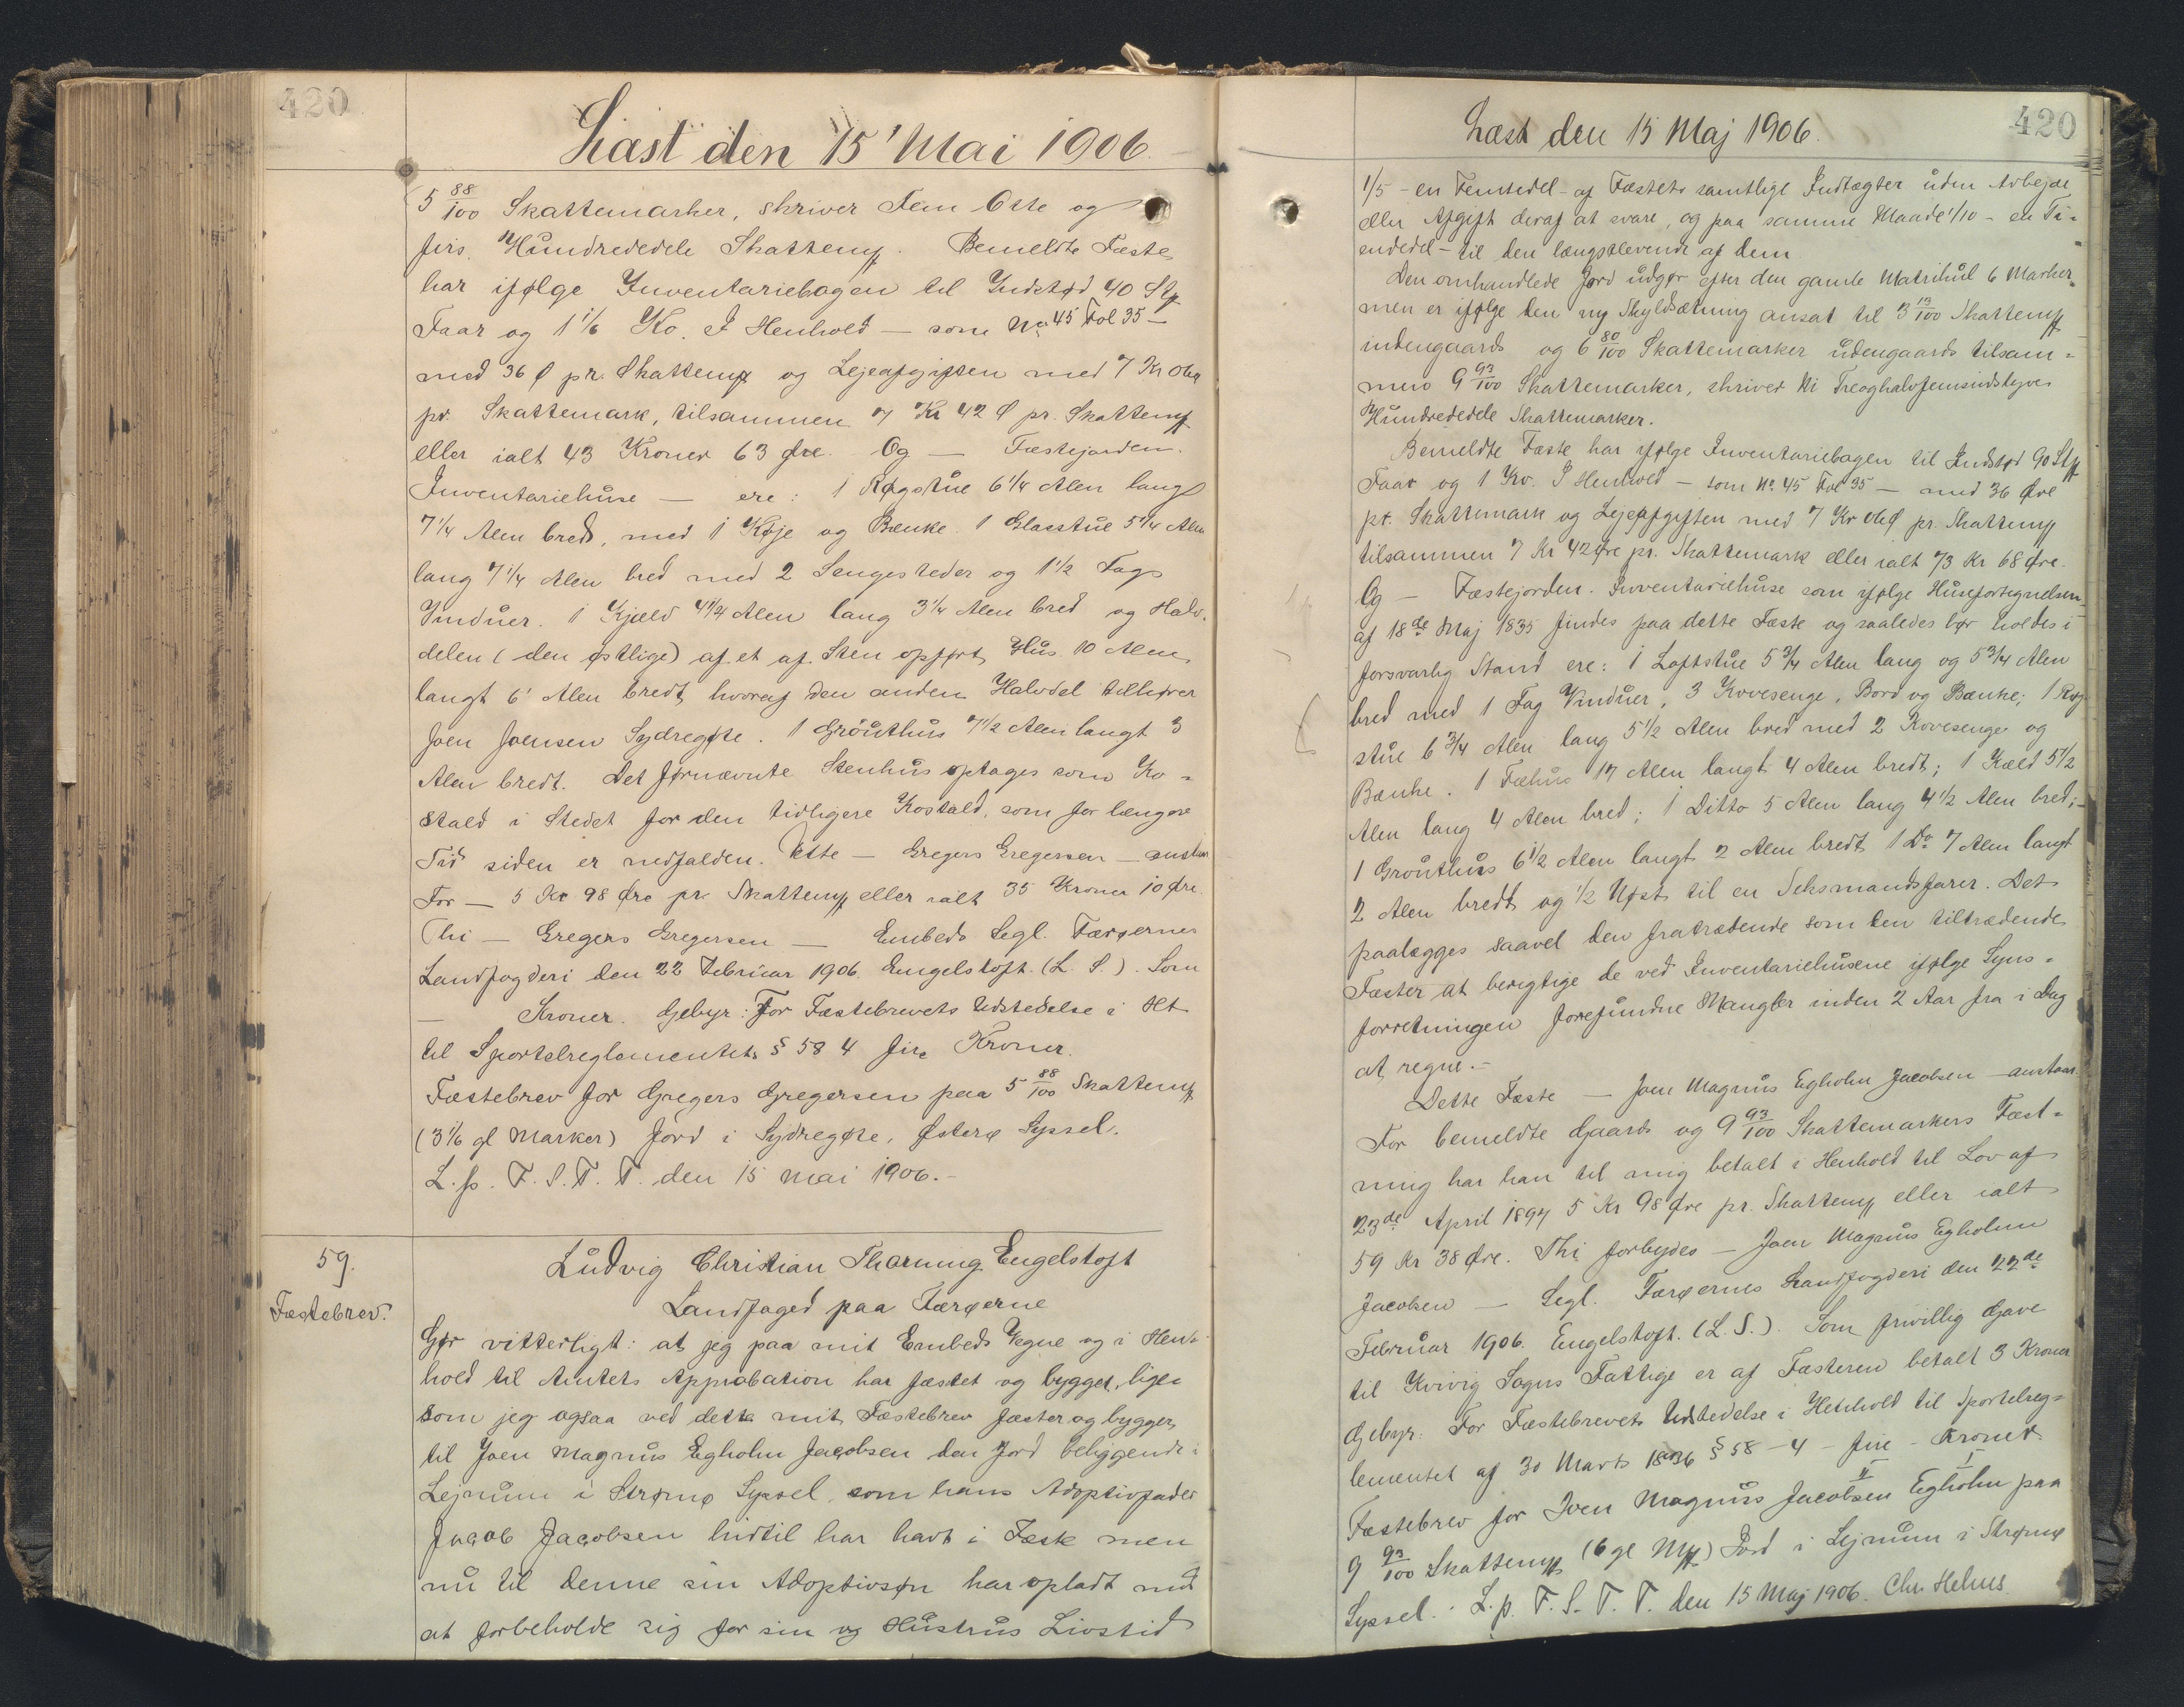 420
Læst den 15' Mai 1906.
5 88/100 Skattemarker, skriver Fem Otte og
firs. Hundrededele Skattemk. Bemeldte Fæste
har ifølge Inventariebogen til Indstød 40 Stk
Faar og 1 1/6 Ko. I Henhold — som No 45 Fol 35 —
med 36 Ø pr. Skattemk og Lejeafgiften med 7 Kr 06 Ø
pr. Skattemark, tilsammen 7 Kr 42 Ø pr. Skattemk
eller ialt 43 Kroner 63 Øre. Og — Fæstejorden.
Inventariehuse — ere: 1 Røgstue 6 1/4 Alen lang
7 1/4 Alen bred, med 1 Køje og Bænke. 1 Glasstue 5 1/4 Alen
lang 7 1/4 Alen bred med 2 Sengesteder og 1 1/2 Fag
Vinduer. 1 Kjeld 4 1/4 Alen lang 3 1/4 Alen bred og Halv-
delen (den østlige) af et af Sten opført Hus 10 Alen
langt 6 Alen bredt, hvoraf den anden Halvdel tilhører
Joen Joensen Sydregøte. 1 Grönthus 7 1/2 Alen langt 3
Alen bredt. Det førnævnte Stenhus optages som Ko=
stald i Stedet for den tidligere Kostald, som for længere
Tid siden er nedfalden. Dette — Gregers Gregersen — anstaar
For — 5 Kr 98 Øre pr. Skattemk eller ialt 35 Kroner 10 Øre.
Thi — Gregers Gregersen — Embeds Segl. Færøernes
Landfogderi den 22 Februar 1906. Engelstoft. (L. S.). Som
— Kroner. Gebyr: For Fæstebrevets Udstedelse i Ht
til Sportelreglementets § 58 4 fire Kroner.
Fæstebrev for Gregers Gregersen paa 5 88/100 Skattemk
(3 1/6 gl Marker) Jord i Sydregøte, Østerø Syssel.
L. p. F. S. T. T. den 15 Mai 1906.-
59.
Fæstebrev.
Ludvig Christian Tharning Engelstoft
Landfoged paa Færøerne
Gør vitterligt: at jeg paa mit Embeds Vegne og i Hen-
hold til Amtets Approbation har fæstet og bygget, lige-
som jeg ogsaa ved dette mit Fæstebrev fæster og bygger
til Joen Magnus Egholm Jacobsen den Jord beliggende i
Lejnum i Strømø Syssel, som hans Adoptivfader
Jacob Jacobsen hidtil har havt i Fæste men
nu til denne sin Adoptivsøn har opladt med
at forbeholde sig for sin og Hustrus Livstid
420
Læst den 15 Maj 1906.
1/5 - en Femtedel - af Fæstets samtlige Indtægter uden Arbejde
eller Afgift deraf at svare, og paa samme Maade 1/10 - en Ti=
endedel - til den længstlevende af dem
Den omhandlede Jord udgør efter den gamle Matrikul 6 Marker,
men er ifølge den ny Skyldsætning ansat til 3 13/100 Skattemk
indengaards og 6 80/100 Skattemarker udengaards tilsam=
men 9 93/100 Skattemarker, skriver Ni Treoghalvfemsindstyve
Hundrededele Skattemarker.
Bemeldte Fæste har ifølge Inventariebogen til Indstød 90 Stk
Faar og 1 Ko. I Henhold — som No. 45 Fol 35 — med 36 Øre
pr. Skattemark og Lejeafgiften med 7 Kr 06 Ø pr. Skattemk
tilsammen 7 Kr 42 Øre pr. Skattemark eller ialt 73 Kr 68 Øre.
Og — Fæstejorden. Inventariehuse som ifølge Husefortegnelsen
af 18de Maj 1835 findes paa dette Fæste og saaledes bør holdes i
forsvarlig Stand ere: 1 Loftstue 5 3/4 Alen lang og 5 3/4 Alen
bred med 1 Fag Vinduer, 3 Kovesenge, Bord og Bænke; 1 Røg-
stue 6 3/4 Alen lang 5 1/2 Alen bred med 2 Kovesenge og
Bænke. 1 Fæhus 17 Alen langt 4 Alen bredt; 1 Kæld 5 1/2
Alen lang 4 Alen bred; 1 Ditto 5 Alen lang 4 1/2 Alen bred;
1 Grönthus 6 1/2 Alen langt 2 Alen bredt 1 Do 7 Alen langt
2 Alen bredt og 1/2 Nøst til en Seksmandsfarer. Det
paalægges saavel den fratrædende som den tiltrædende
Fæster at berigtige de ved Inventariehusene ifølge Syns=
forretningen forefundne Mangler inden 2 Aar fra i Dag
at regne.-
Dette Fæste — Joen Magnus Egholm Jacobsen — anstaar
For bemeldte Gaards og 9 93/100 Skattemarkers Fæst=
ning har han til mig betalt i Henhold til Lov af
23de April 1897 5 Kr 98 Øre pr. Skattemk eller ialt
59 Kr 38 Øre. Thi forbydes — Joen Magnus Egholm
Jacobsen — Segl. Færøernes Landfogderi den 22de
Februar 1906. Engelstoft. (L. S.). Som frivillig Gave
til Kvivig Sogns Fattige er af Fæsteren betalt 3 Kroner
Gebyr: For Fæstebrevets Udstedelse i Henhold til Sportelreg=
lementet af 30 Marts 1836 § 58 - 4 - fire - Kroner.
Fæstebrev for Joen Magnus Jacobsen II Egholm I paa
9 93/100 Skattemk (6 gl Mk) Jord i Lejnum i Strømø
Syssel. L. p. F. S. T. T. den 15 Maj 1906. Chr. Helms